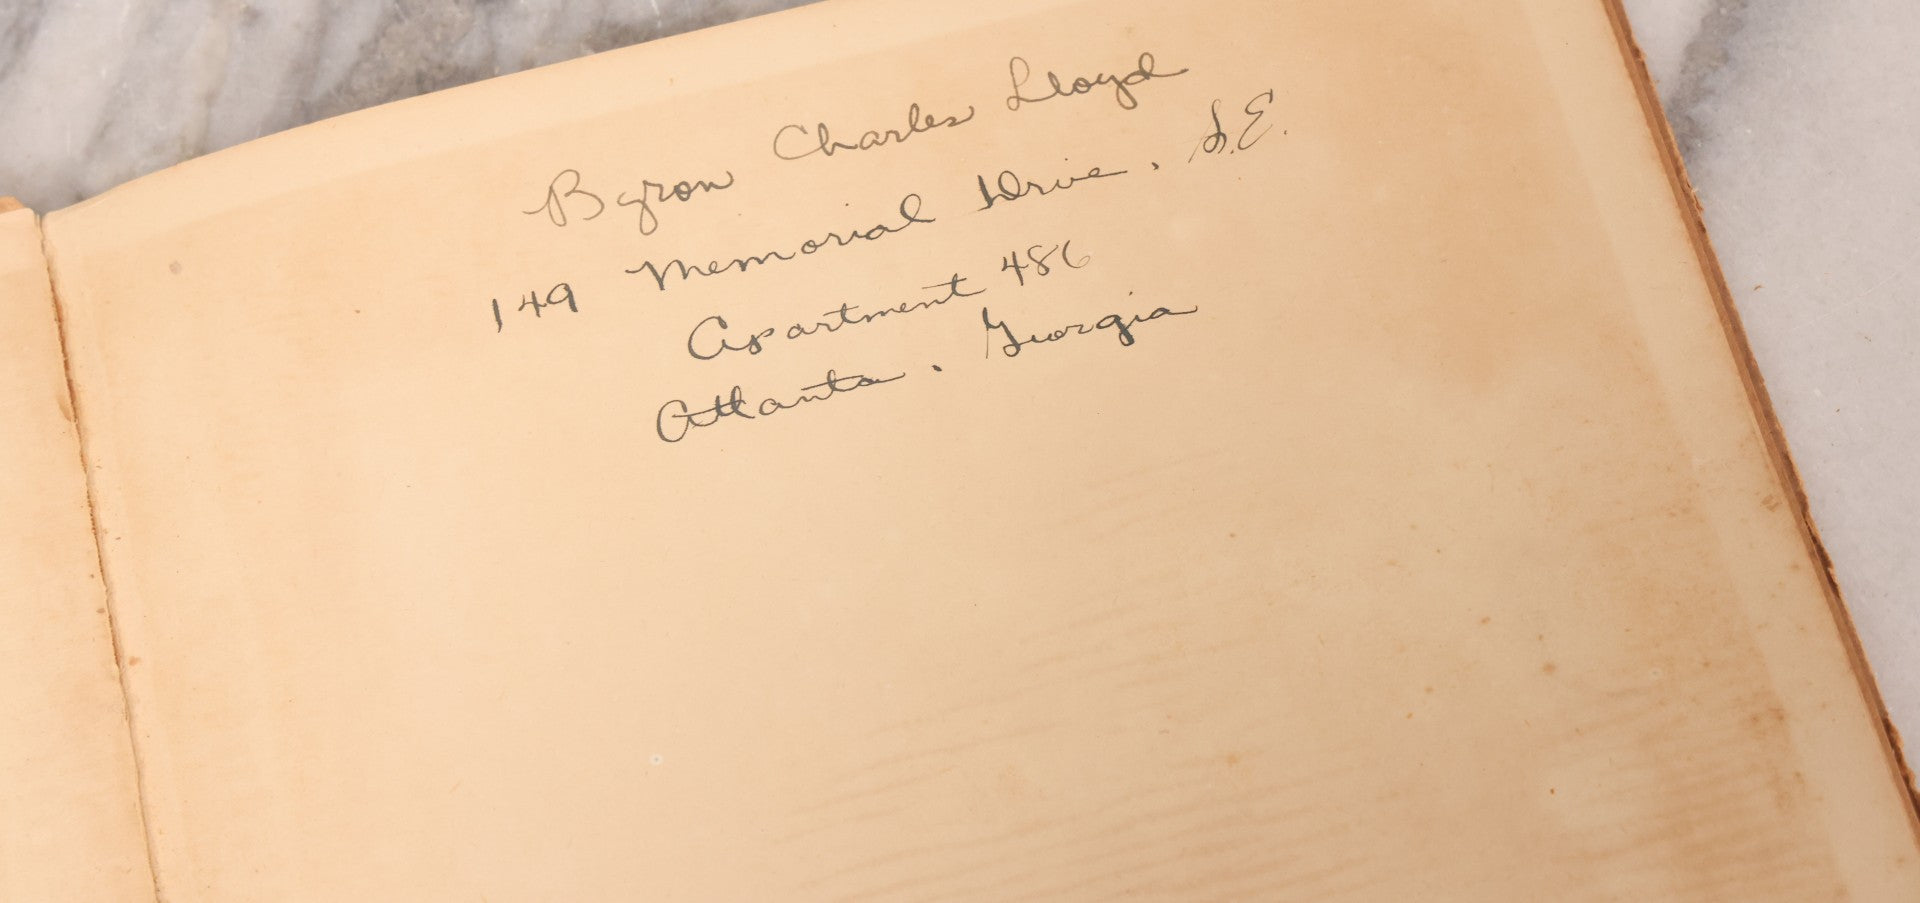 Byron Charles Lloyd
149 Memorial Drive. S.E.
Apartment 486
Atlanta. Georgia